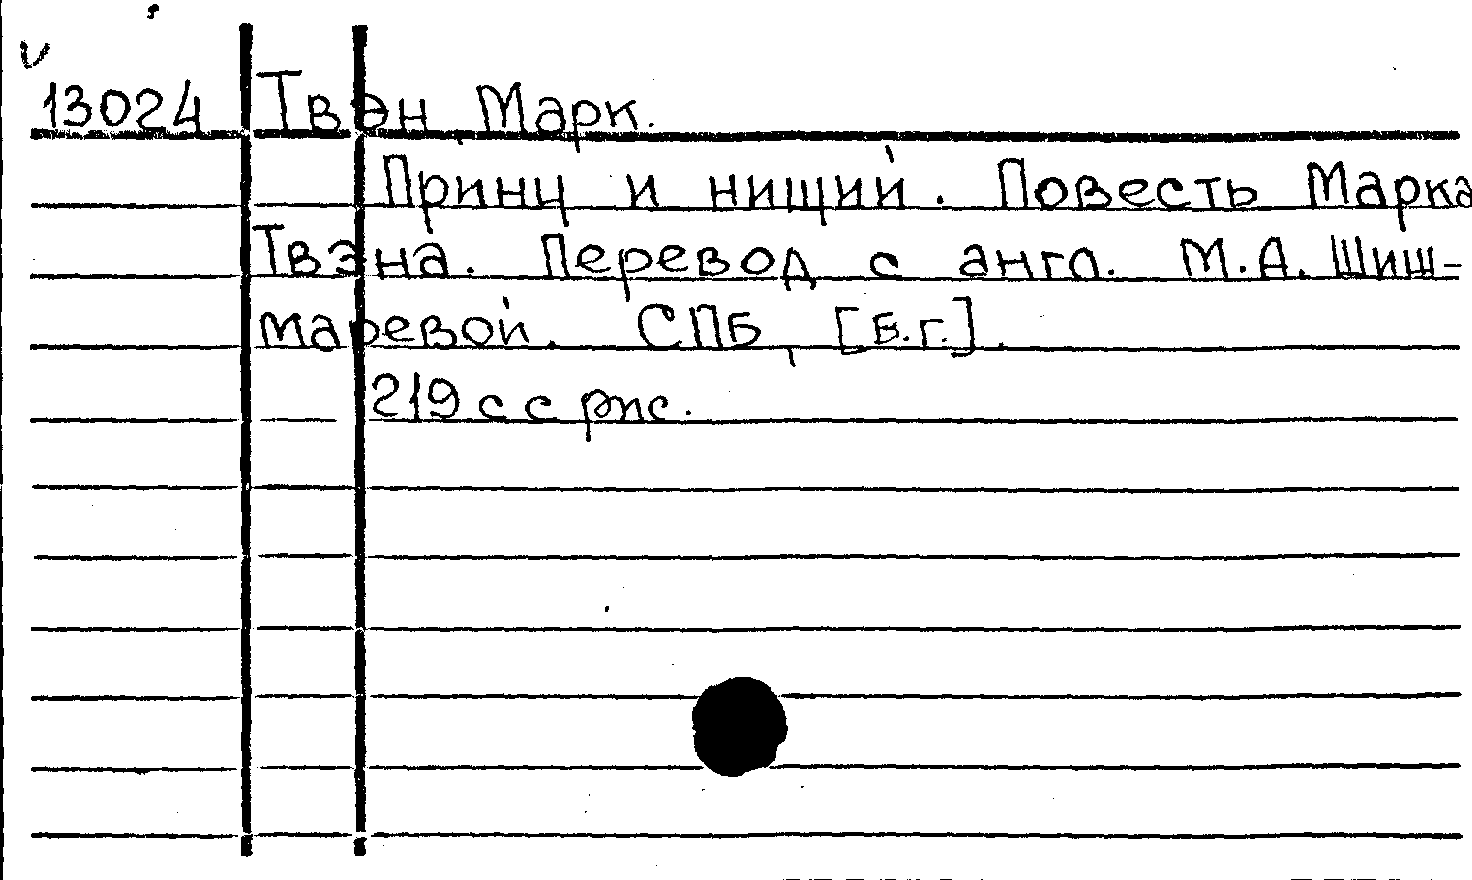 13024 Твэн Марк.
Принц и нищий. Повесть Марка
Твэна. Перевод с англ. М.А. Шиш-
маревой. СПБ, [б.г.].
219 с с рис.